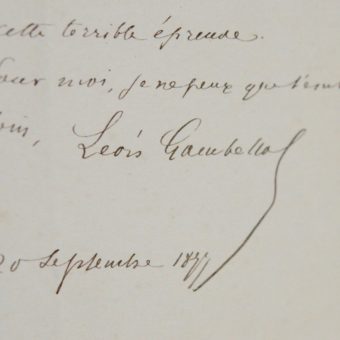 cette terrible épreude.
Pour moi, je ne peux que t'en
loin, Leóis Gambella
20 Septembre 1877